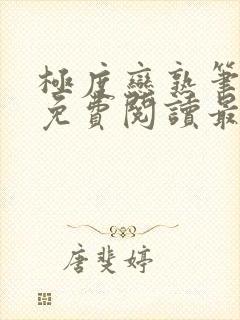 極度戀熟筆
免費閱讀最
唐斐婷